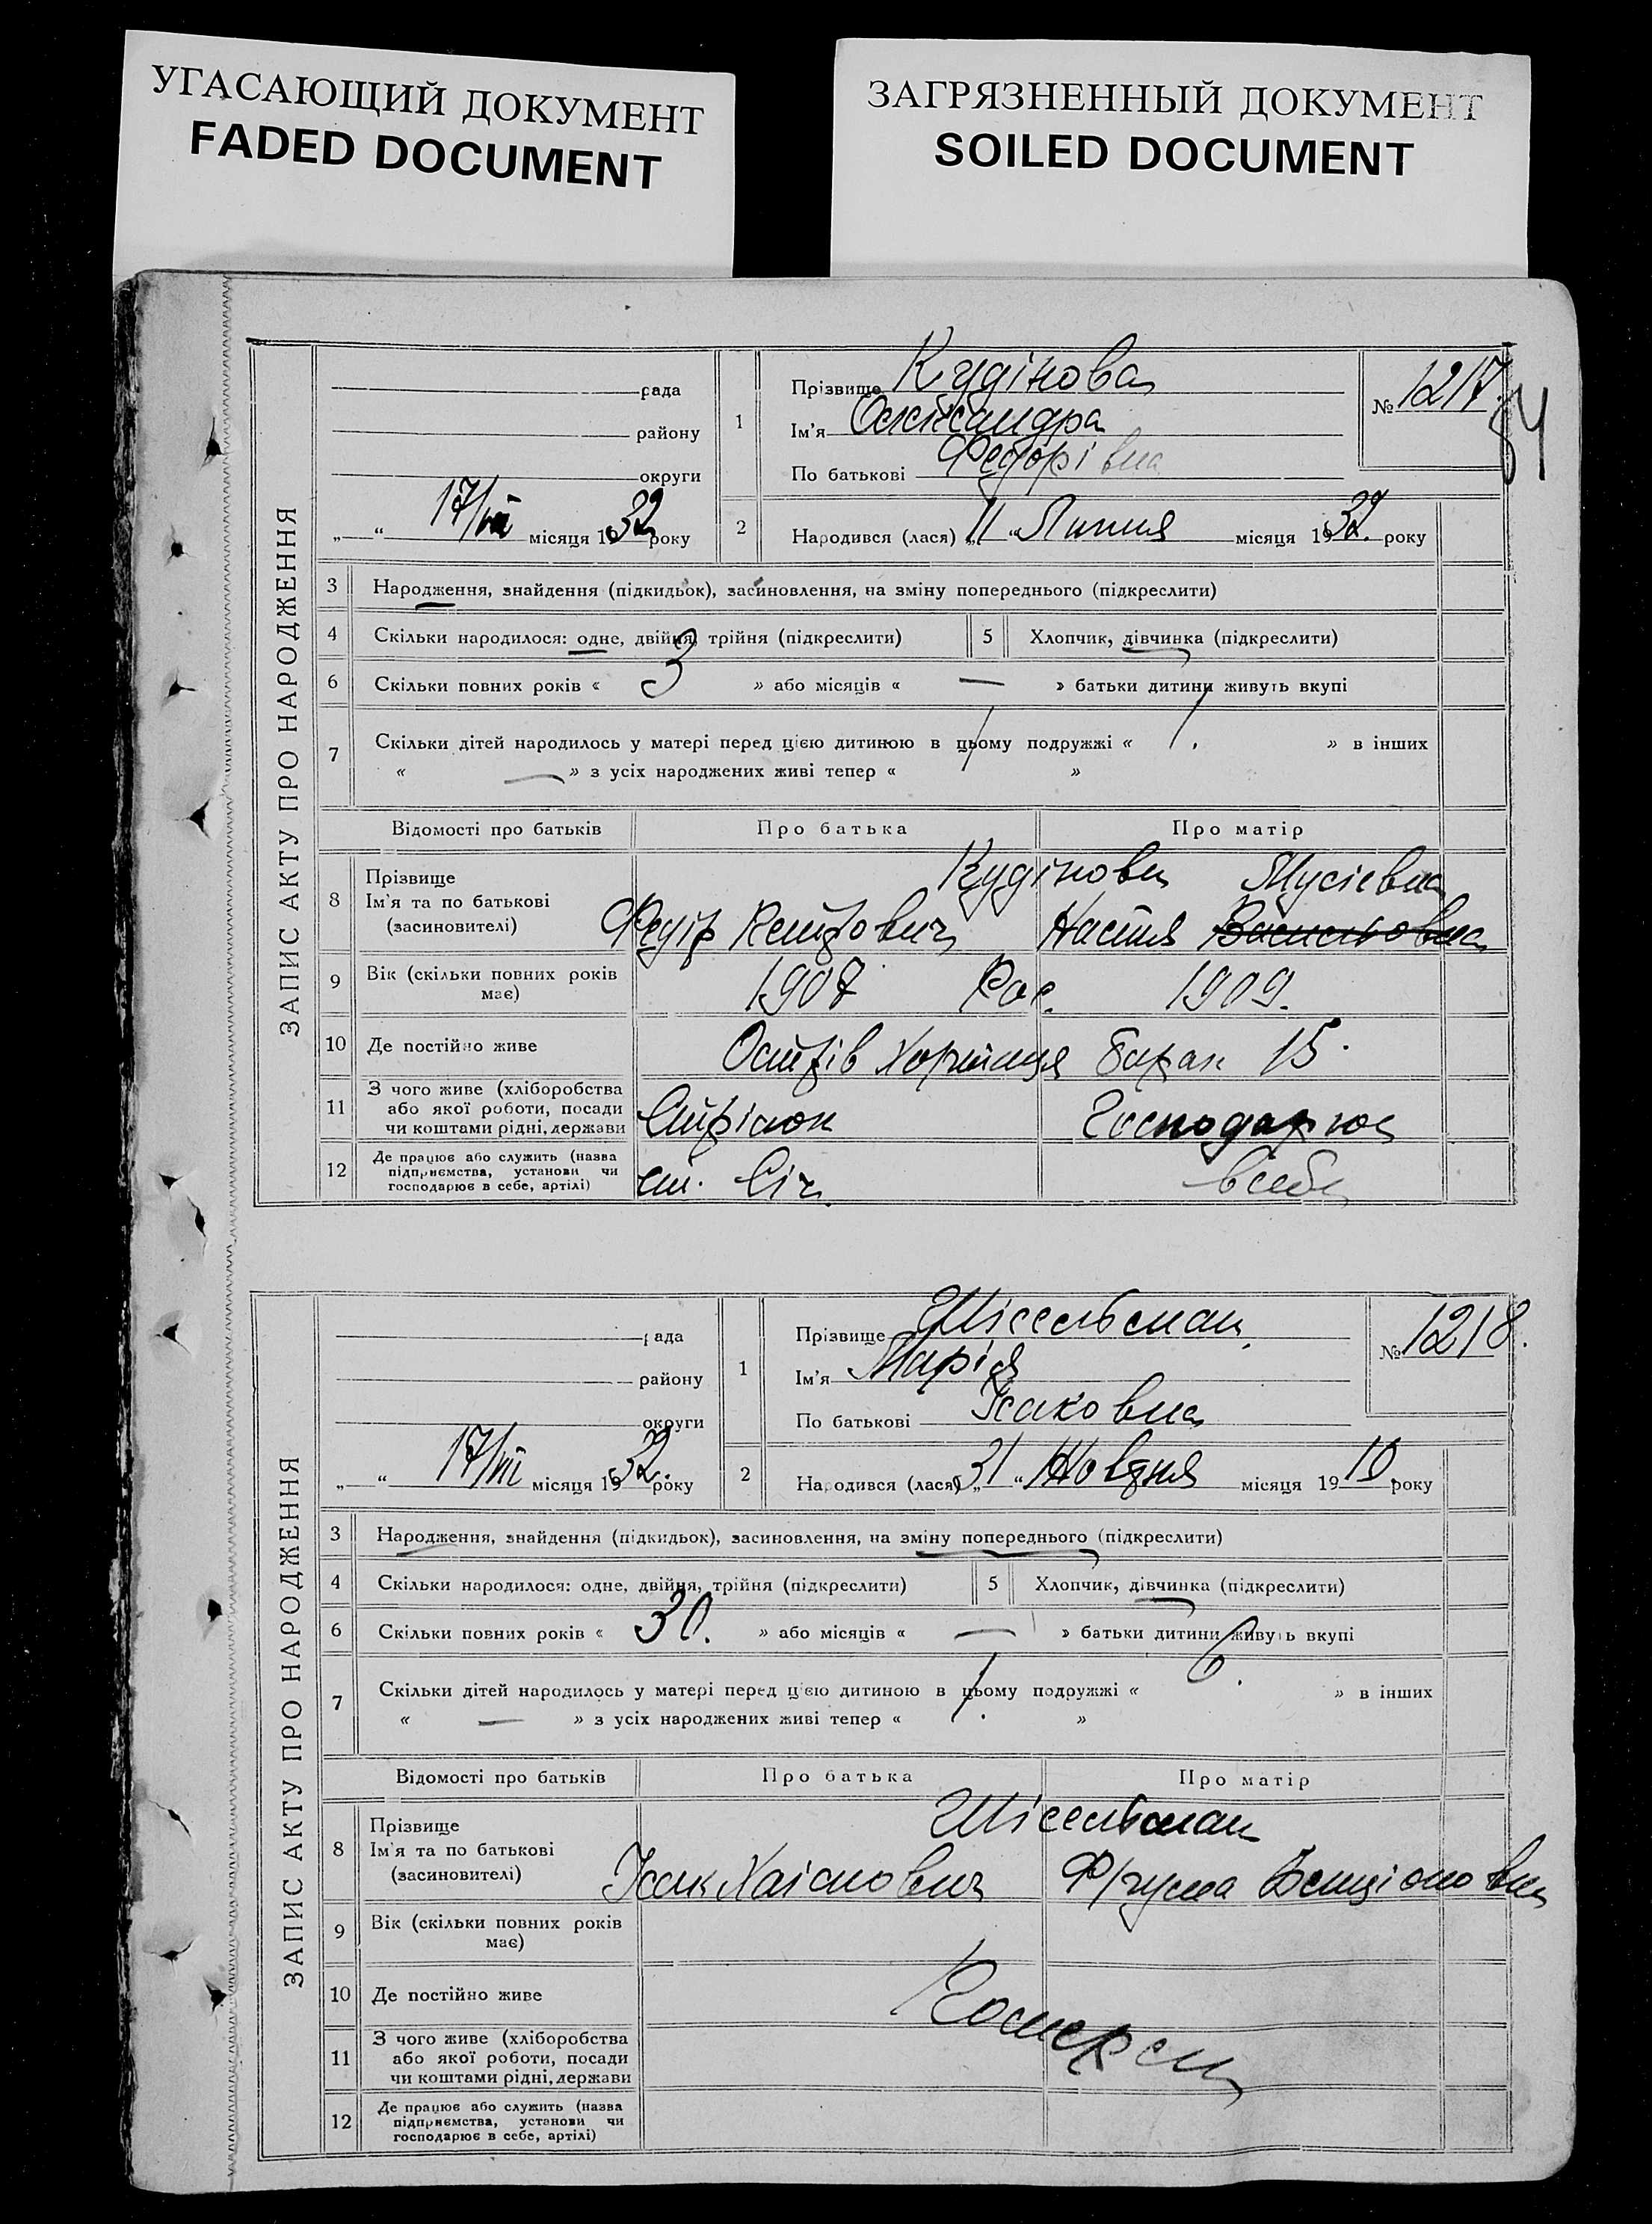 УГАСАЮЩИЙ ДОКУМЕНТ
FADED DOCUMENT
ЗАГРЯЗНЕННЫЙ ДОКУМЕНТ
SOILED DOCUMENT
84
ЗАПИС АКТУ ПРО НАРОДЖЕННЯ
рада
району
округи
„ “ 17/VII місяця 1932 року
1 Прізвище Кудінова
Ім'я Олександра
По батькові Федорівна
№ 1217.
2 Народився (лася) „11“ Липня місяця 1932. року
3 Народження, знайдення (підкидьок), засиновлення, на зміну попереднього (підкреслити)
4 Скільки народилося: одне, двійня, трійня (підкреслити) 5 Хлопчик, дівчинка (підкреслити)
6 Скільки повних років « 3 » або місяців « — » батьки дитини живуть вкупі
7 Скільки дітей народилось у матері перед цією дитиною в цьому подружжі « 1. » в інших
« — » з усіх народжених живі тепер « 1 »
Відомості про батьків Про батька Про матір
8 Прізвище
Ім'я та по батькові
(засиновителі)
Кудінови Мусієвна
Федір Настя Васильовна
9 Вік (скільки повних років
має)
1907 Рос. 1909.
10 Де постійно живе Острів Хортиця барак 15.
11 З чого живе (хліборобства
або якої роботи, посади
чи коштами рідні, держави
Стрілок Господарює
12 Де працює або служить (назва
підприємства, установи чи
господарює в себе, артілі)
ст. Січ. в себе
ЗАПИС АКТУ ПРО НАРОДЖЕННЯ
рада
району
округи
„ “ 17/VII місяця 1932. року
1 Прізвище Шісельман
Ім'я Марія
По батькові Ісаковна
№ 1218.
2 Народився (лася) „31“ Жовтня місяця 1910 року
3 Народження, знайдення (підкидьок), засиновлення, на зміну попереднього (підкреслити)
4 Скільки народилося: одне, двійня, трійня (підкреслити) 5 Хлопчик, дівчинка (підкреслити)
6 Скільки повних років « 30. » або місяців « — » батьки дитини живуть вкупі
7 Скільки дітей народилось у матері перед цією дитиною в цьому подружжі « 6. » в інших
« — » з усіх народжених живі тепер « 1. »
Відомості про батьків Про батька Про матір
8 Прізвище
Ім'я та по батькові
(засиновителі)
Шісельман
Ісак Хаімович Фрума Бенціоновна
9 Вік (скільки повних років
має)
10 Де постійно живе
11 З чого живе (хліборобства
або якої роботи, посади
чи коштами рідні, держави
12 Де працює або служить (назва
підприємства, установи чи
господарює в себе, артілі)